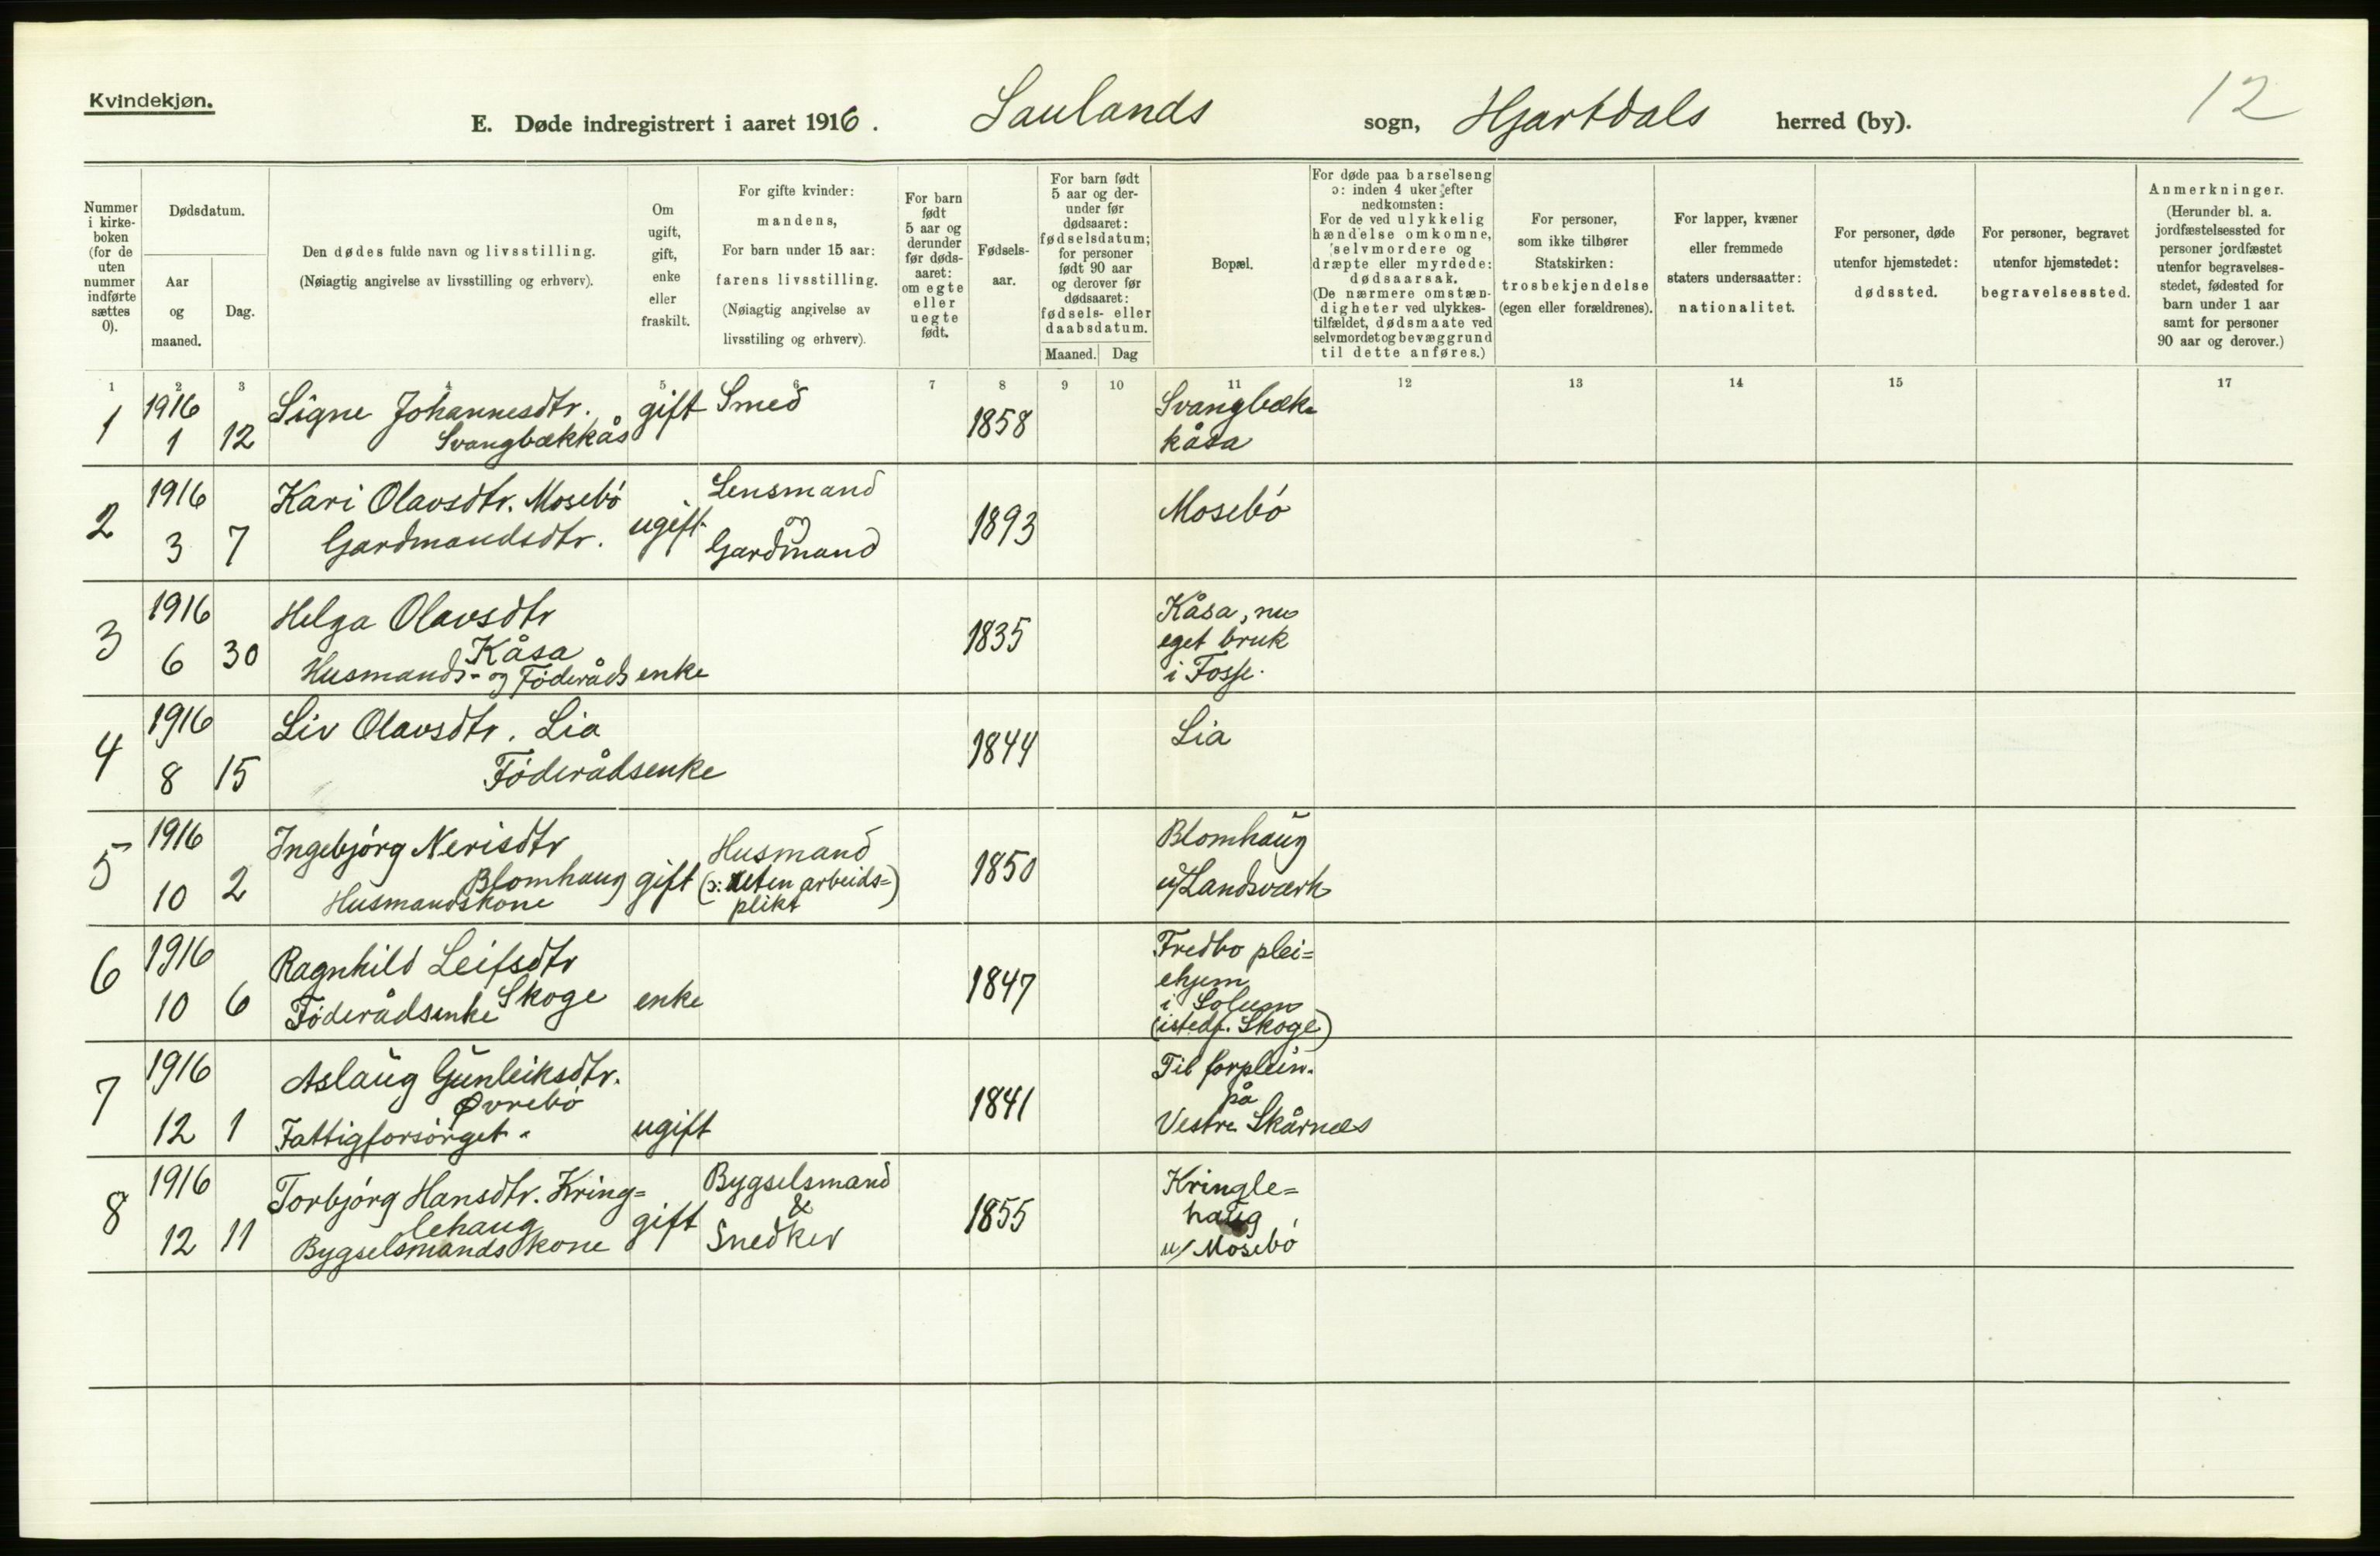 Kvindekjøn.
12
E. Døde indregistrert i aaret 1916. Saulands sogn, Hjartdals herred (by).
Nummer i kirke-boken (for de uten nummer indførte sættes 0).
Dødsdatum.
Aar og maaned.
Dag.
Den dødes fulde navn og livsstilling.
(Nøiagtig angivelse av livsstilling og erhverv).
Om ugift, gift, enke eller fraskilt.
For gifte kvinder: mandens,
For barn under 15 aar: farens livsstilling.
(Nøiagtig angivelse av livsstiling og erhverv).
For barn født 5 aar og derunder før døds-aaret: om egte eller uegte født.
Fødsels-aar.
For barn født 5 aar og der-under før dødsaaret: fødselsdatum; for personer født 90 aar og derover før dødsaaret: fødsels- eller daabsdatum.
Maaned. Dag
Bopæl.
For døde paa barselseng ɔ: inden 4 uker efter nedkomsten:
For de ved ulykkelig hændelse omkomne, selvmordere og dræpte eller myrdede: dødsaarsak.
(De nærmere omstæn-digheter ved ulykkes-tilfældet, dødsmaate ved selvmordet og bevæggrund til dette anføres.)
For personer, som ikke tilhører Statskirken: trosbekjendelse (egen eller forældrenes).
For lapper, kvæner eller fremmede staters undersaatter: nationalitet.
For personer, døde utenfor hjemstedet: dødssted.
For personer, begravet utenfor hjemstedet: begravelsessted.
Anmerkninger.
(Herunder bl. a. jordfæstelsessted for personer jordfæstet utenfor begravelses-stedet, fødested for barn under 1 aar samt for personer 90 aar og derover.)
1 2 3 4 5 6 7 8 9 10 11 12 13 14 15 17
1 1916 1 12 Signe Johannesdtr. Svangbækkås gift Smed 1858 Svangbæk-kåsa
2 1916 3 7 Kari Olavsdtr. Mosebö Gardmandsdtr. ugift Lensmand og Gardmand 1893 Mosebö
3 1916 6 30 Helga Olavsdtr Kåsa Husmands- og Föderåds enke 1835 Kåsa, nu eget bruk i Fosse.
4 1916 8 15 Liv Olavsdtr. Lia Föderådsenke 1844 Lia
5 1916 10 2 Ingebjörg Nerisdtr Blomhaug Husmandskone gift Husmand (ɔ: uten arbeids=plikt) 1850 Blomhaug u/Landsværk
6 1916 10 6 Ragnhild Leifsdtr Skoge Föderådsenke enke 1847 Fredbo plei=ehjem i Solum (istedf. Skoge)
7 1916 12 1 Aslaug Gunleiksdtr. Øvrebö Fattigforsörget. ugift 1841 Til forplein. på Vestre Skårnes
8 1916 12 11 Torbjörg Hansdtr. Kring=lehaug Bygselsmandskone gift Bygselsmand & Snedker 1855 Kringle=haug u/Mosebö